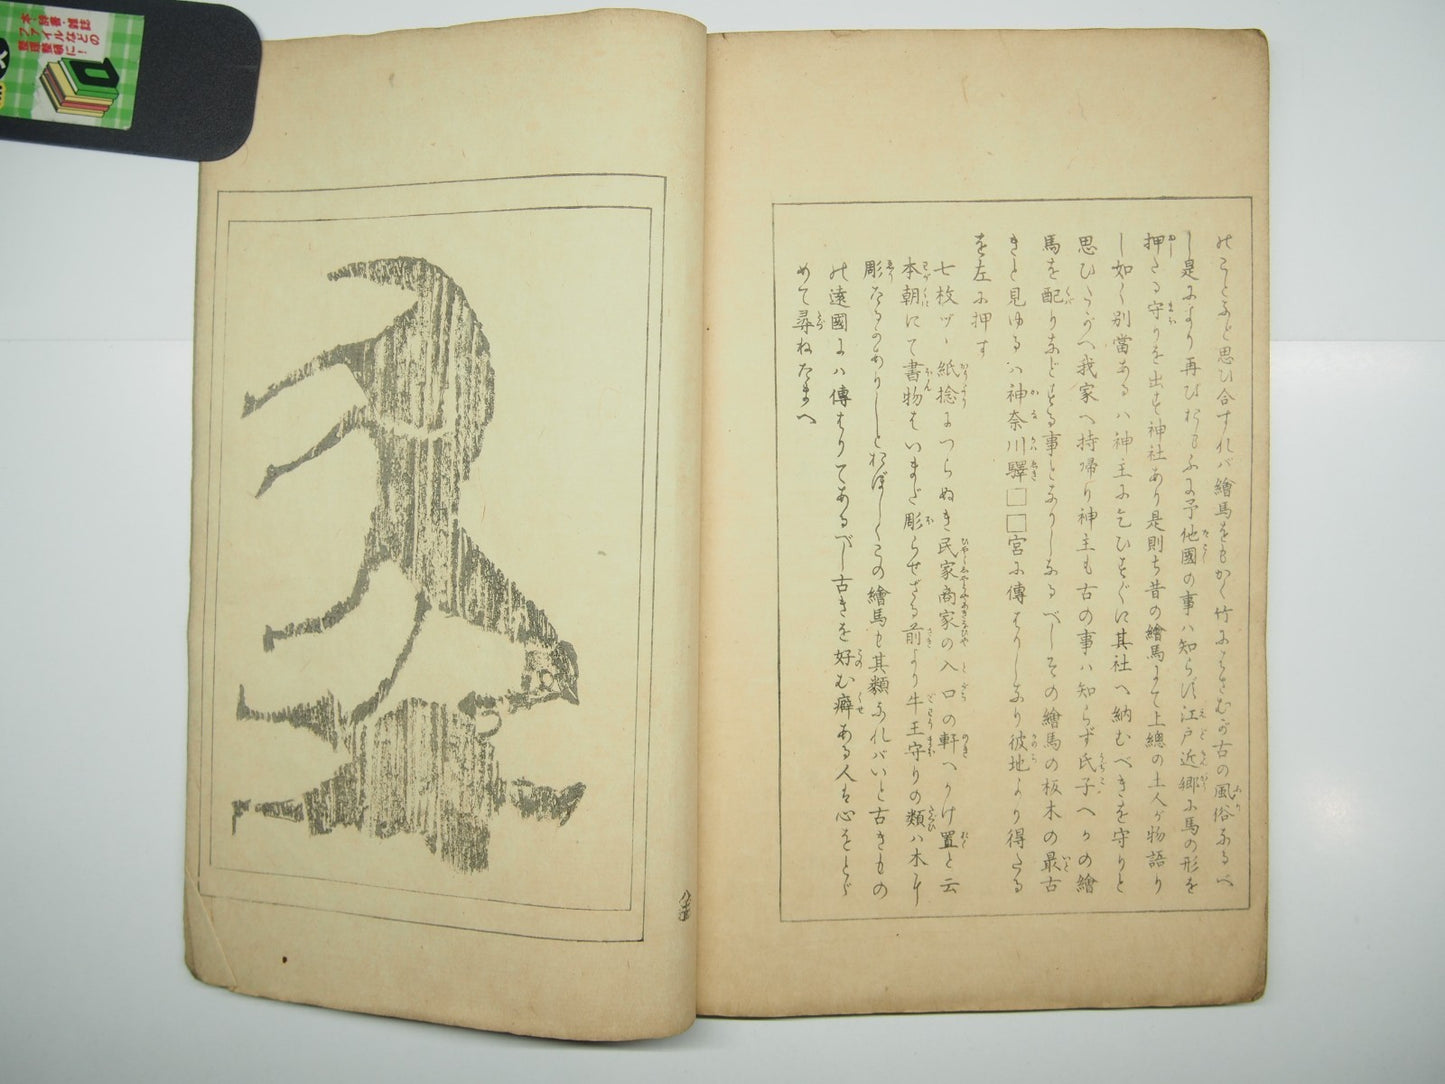 のことなど思ひ合すれバ繪馬をもかく竹にはさむが古の風俗なるべ
し是によりて再びおもふに予他國の事ハ知らず江戸近郷に馬の形を
押たる守りを出す神社あり是則ち昔の繪馬にて上總の土人が物語り
し如く別當あるハ神主に乞ひすぐに其社へ納むべきを守りと
思ひたがへ我家へ持帰り神主も古の事ハ知らず氏子へかの繪
馬を配りなどする事となりしなるべしその繪馬の板木の最古
きと見ゆるハ神奈川驛□□宮に傳はりしなり彼地より得たる
を左に押す
七枚ヅヽ紙捻につらぬき民家商家の入口の軒へかけ置と云
本朝にて書物はいまだ彫らせざる前より牛王守りの類ハ木に
彫たるのありしとおぼしくこの繪馬も其類なれバいと古きもの
の遠國にハ傳はりてあるべし古きを好む癖ある人は心をとゞ
めて尋ねたまへ
本・辞書・雑誌
ファイルなどの
整理整頓に!